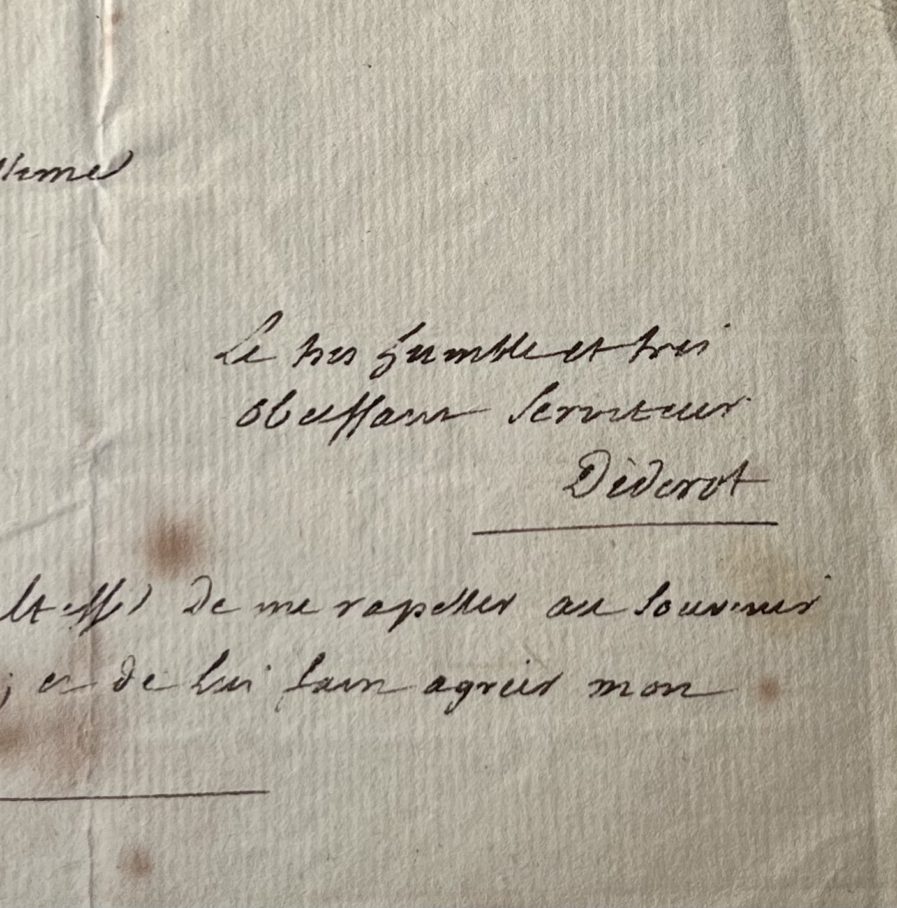 Le tres humble et tres
obeissant serviteur
Diderot
de me rapeller au souvenir
; et de lui faire agréer mon